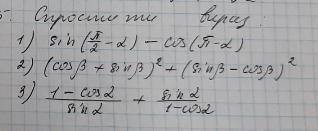 5. Спростити вираз:
1) sin(π/2 - α) - cos(π-α)
2) (cosβ + sinβ)² + (sinβ - cosβ)²
3) (1 - cosα)/(sinα) + (sinα)/(1-cosα)